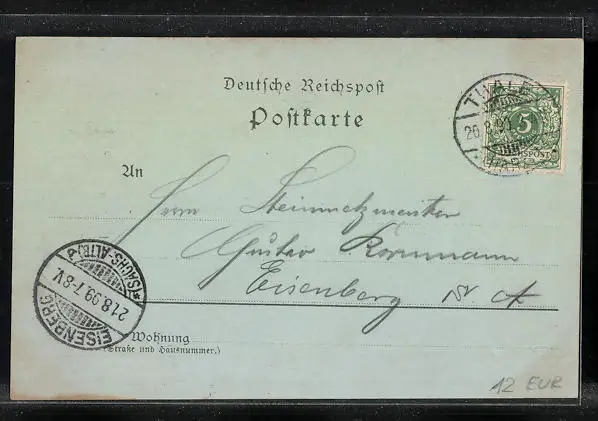 Deutsche Reichspost
Postkarte
THALE
20.8.99
HARZ
5
REICHSPOST
An
Herrn Steinmetzmeister
Gustav Kornmann
Eisenberg S/A
EISENBERG
21.8.99.7-8V.
*(SACHS.-ALTB.)a
Wohnung
(Straße und Hausnummer.)
12 EUR